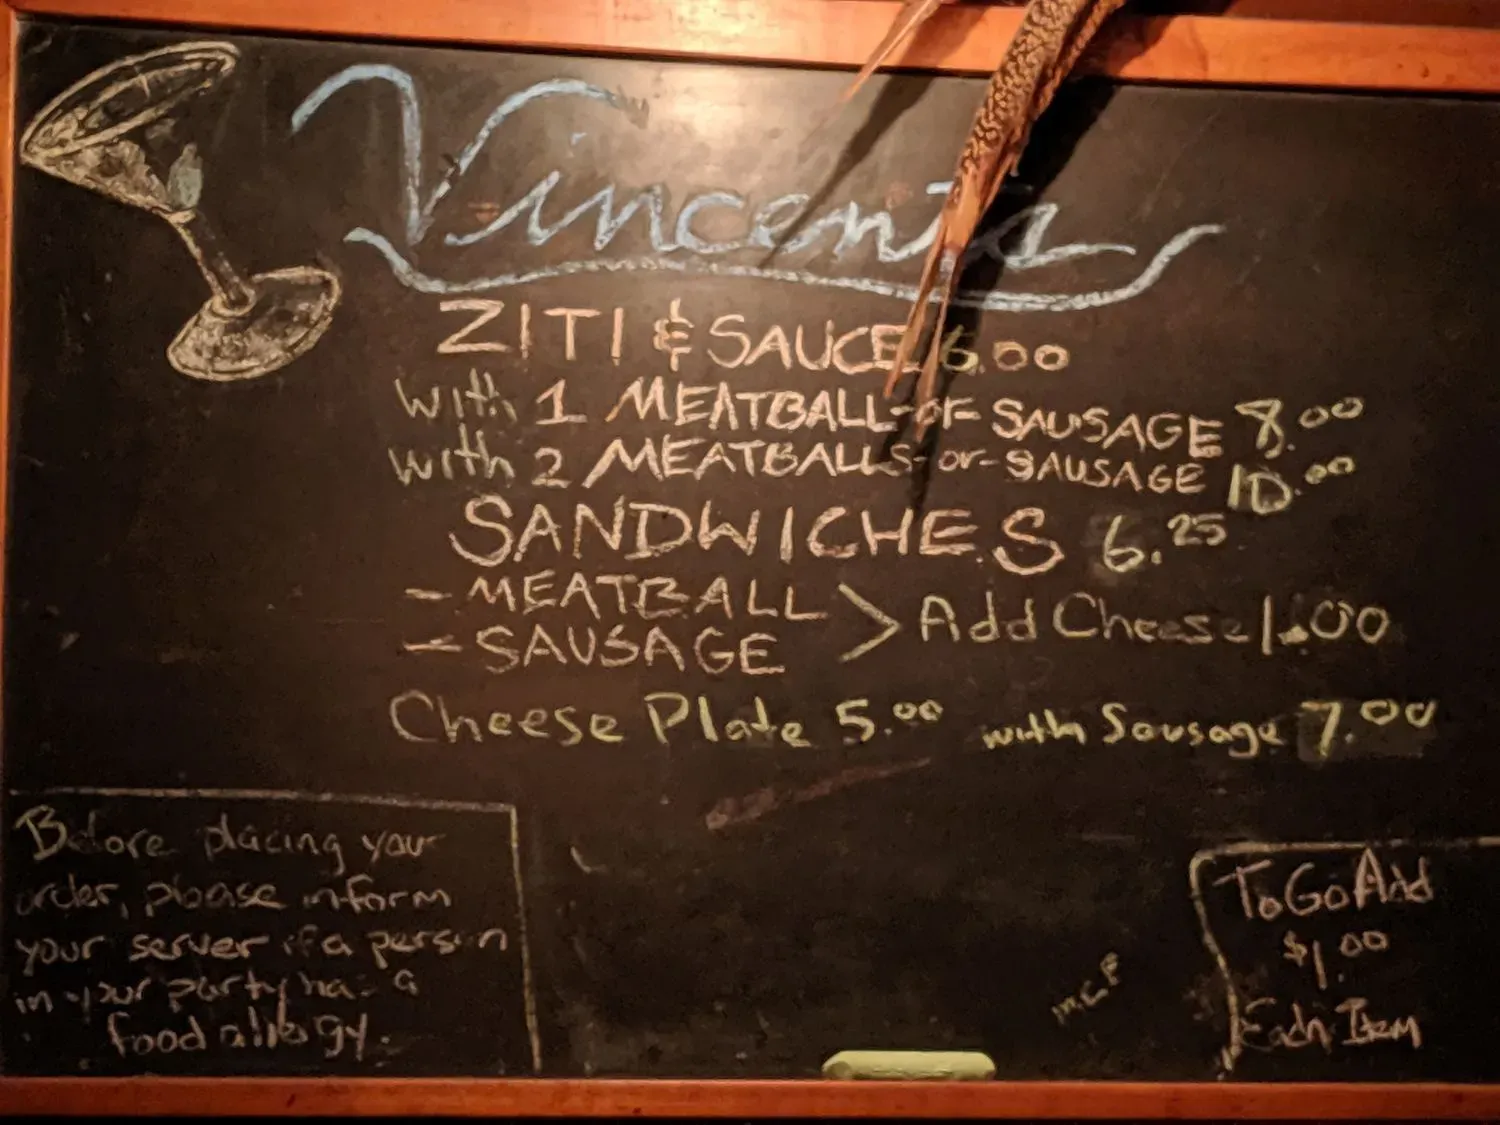 ZITI & SAUCE 6.00
with 1 MEATBALL-OF SAUSAGE 8.00
with 2 MEATBALLS-or-SAUSAGE 10.00
SANDWICHES 6.25
- MEATBALL
- SAUSAGE
> Add Cheese 1.00
Cheese Plate 5.00 with Sausage 7.00
Before placing your
order, please inform
your server if a person
in your party has a
food allergy.
To Go Add
$1.00
Each Item